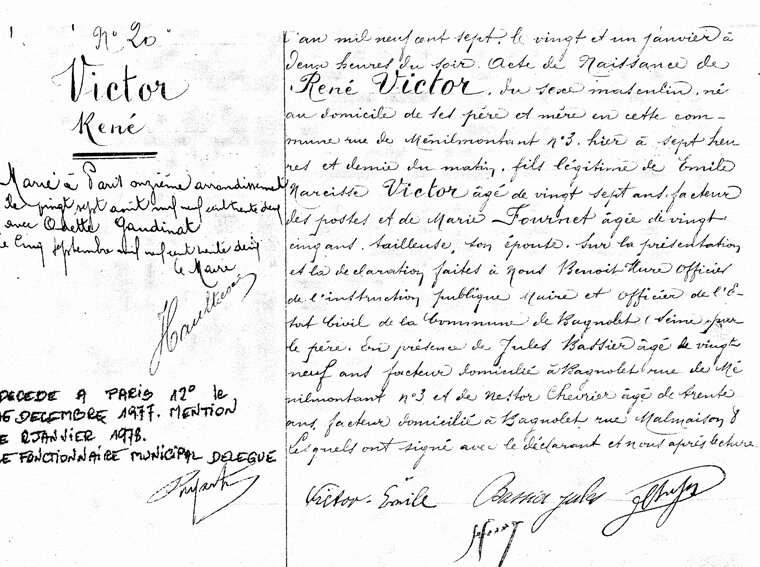 N° 20
Victor
René
Marié à Paris onzième arrondissement
le vingt sept août mil neuf cent trente deux
avec Odette Gaudinat
le cinq septembre mil neuf cent trente deux
le Maire
DECEDE A PARIS 12° le
16 DECEMBRE 1977. MENTION
LE 2 JANVIER 1978.
LE FONCTIONNAIRE MUNICIPAL DELEGUE
L'an mil neuf cent sept, le vingt et un janvier à
deux heures du soir. Acte de Naissance de
René Victor, du sexe masculin, né
au domicile de ses père et mère en cette com-
mune rue de Ménilmontant n° 3. hier à sept heu
res et demie du matin, fils légitime de Emile
Narcisse Victor âgé de vingt sept ans, facteur
des postes et de Marie Fournet âgée de vingt
cinq ans, tailleuse, son épouse. Sur la présentation
et la déclaration faites à Nous Benoit Hure Officier
de l'instruction publique Maire et officier de l'E-
tat Civil de la Commune de Bagnolet (Seine) par
le père. En présence de Jules Bassier âgé de vingt
neuf ans facteur domicilié à Bagnolet rue de Mé
nilmontant n° 3 et de Nestor Chevrier âgé de trente
ans, facteur domicilié à Bagnolet rue Malmaison 8
Lesquels ont signé avec le déclarant et nous après lecture
Victor Emile Bassier Jules